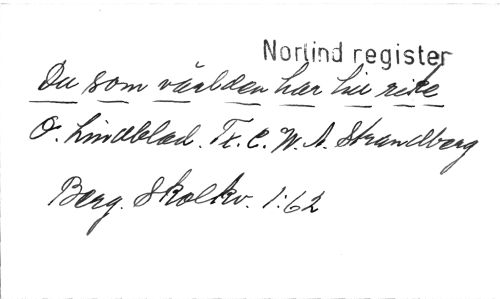 Norlind register
Du som världen har till rike
O. Lindblad. Tx. C. W. A. Strandberg
Berg. Skolkv. 1:62